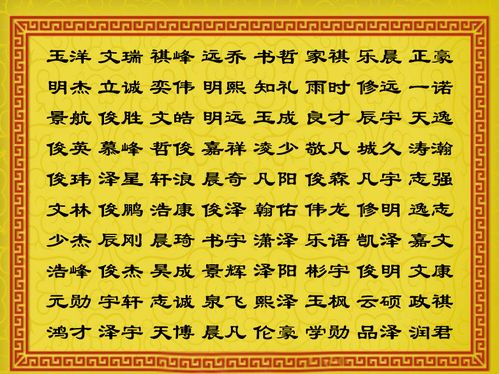 玉洋 文瑞 祺峰 远乔 书哲 家祺 乐晨 正豪
明杰 立诚 奕伟 明熙 知礼 雨时 修远 一诺
景航 俊胜 文皓 明远 玉成 良才 辰宇 天逸
俊英 慕峰 哲俊 嘉祥 凌少 敬凡 城久 涛瀚
俊玮 泽星 轩浪 晨奇 凡阳 俊森 凡宇 志强
文林 俊鹏 浩康 俊泽 翰佑 伟龙 修明 逸志
少杰 辰刚 晨琦 书宇 潇泽 乐语 凯泽 嘉文
浩峰 俊杰 昊成 景辉 泽阳 彬宇 俊明 文康
元勋 宇轩 志诚 泉飞 熙泽 玉枫 云硕 政祺
鸿才 泽宇 天博 晨凡 伦豪 学勋 品泽 润君